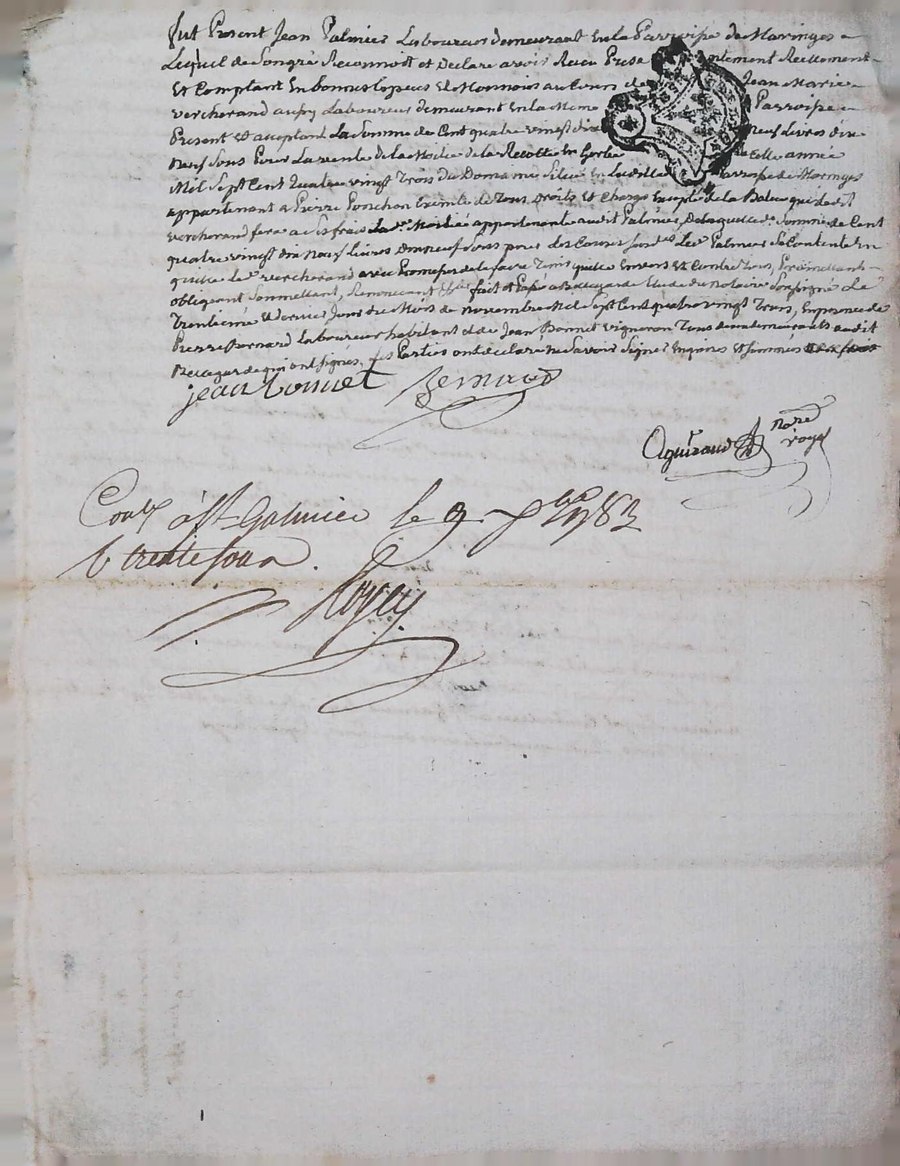 fut Present Jean Palmier Laboureur demeurant En la Parroisse de Maringes
Lequel de Son gré Reconnoit et Declare avoir Receu Presentement Reellement
Et Comptant En bonnes Especes Et Monnois au Cours de Jean Marie
verchorand aussy Laboureur demeurant En la Meme Parroisse
Present et acceptant La Somme de Cent quatre vingt dix Neuf Livres dix
Neuf Sous Pour La vente de la Moitié de la Recolte En de Cette année
Mil Sept Cent Quatre vingt Trois du Domaine Situé En Parroisse de Maringes
appartenant a Pierre Ponchon Exempte de Tous Droits Et Charge Excepté de la qui ledit
verchorand fera a ses frais La de. Moitié appartenante audit Palmier, De laquelle de. Somme de Cent
quatre vingt dix Neuf Livres Dixneuf Sous pour des Causes Led. Palmier Se Contente En
quitte le verchorand avec Promesse de le faire Tenir quitte Envers Et Contre Tous, Promettant
obligeant Soumettant, Renoncant &c. fait et Passé a Etude du Notaire Soussigné Le
Trentieme Jour du Mois de Novembre Mil Sept Cent quatre vingt Trois, En presence de
Pierre Bernard Laboureur habitant et de Jean Bonnet vigneron Tous demeurants audit
qui ont Signés, Les Parties ont declaré Ne Savoir Signer Enquises Et Sommés
jean bonnet Bernard
Aguiraud nore
royal
Conlé à St Galmier le 9 Xbre 1783
trente sous